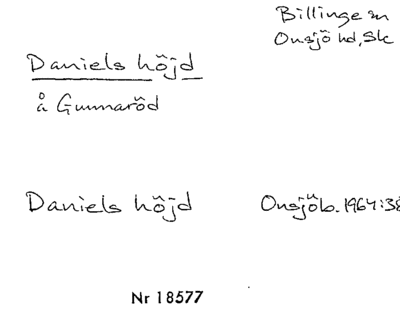 Billinge sn
Onsjö hd, Sk
Daniels höjd
å Gunnaröd
Daniels höjd
Onsjöb. 1964:38
Nr 18577